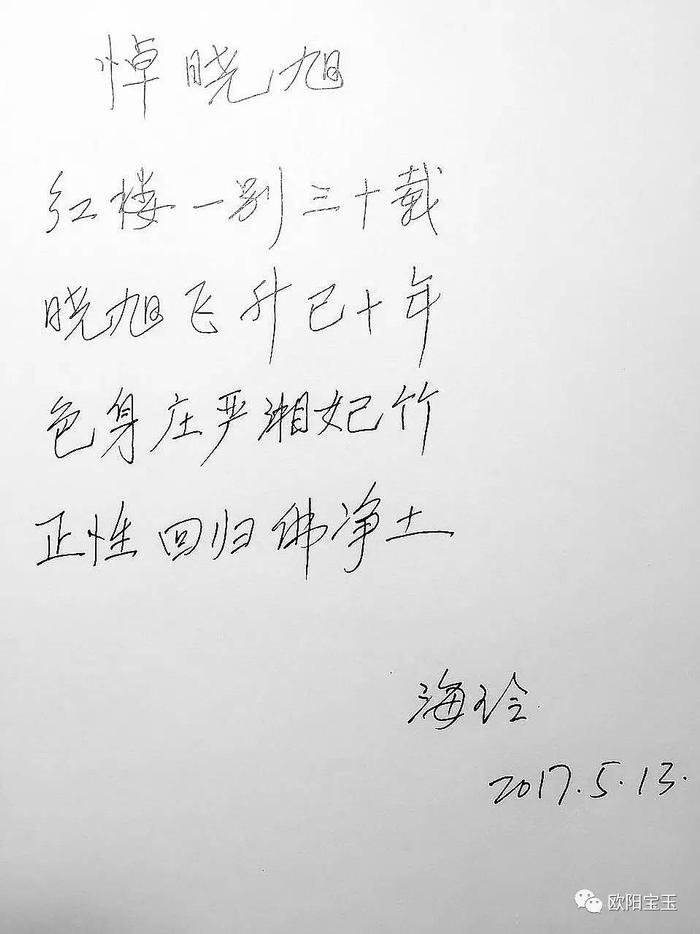 悼晓旭
红楼一别三十载
晓旭飞升已十年
色身庄严湘妃竹
正性回归佛净土
海玲
2017.5.13.
欧阳宝玉